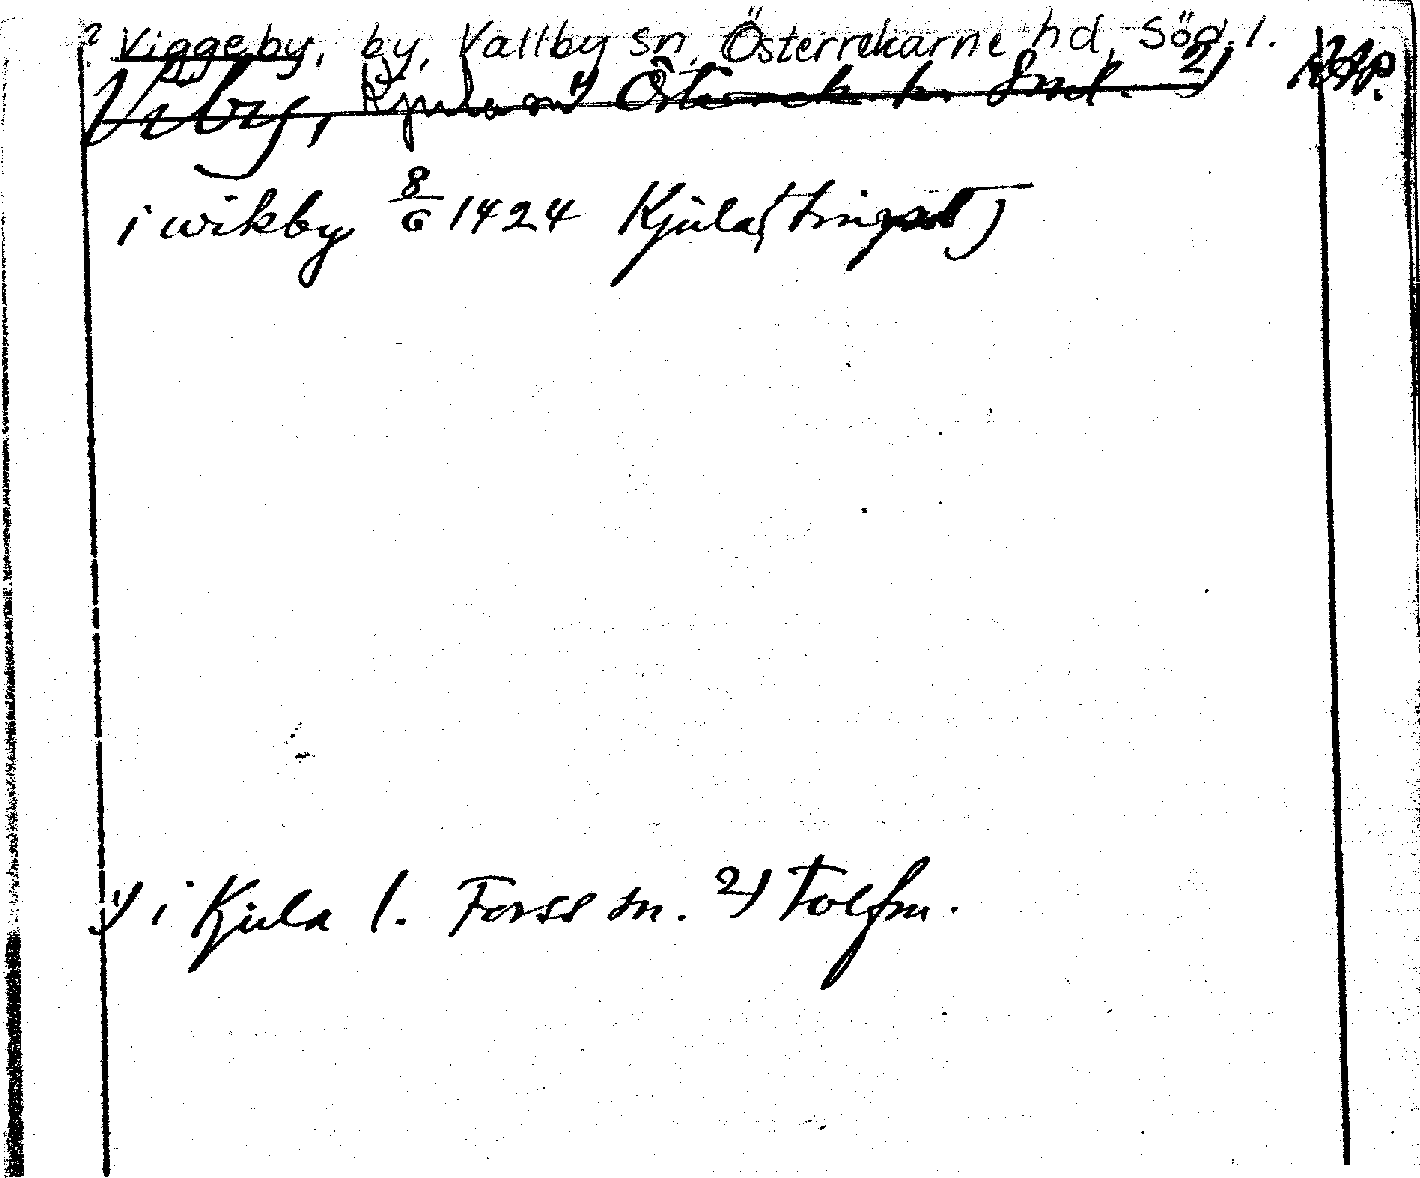 ? Viggeby, by, Vallby sn, Österrekarne hd, Söd. l.
Viby, Kjula sn 1) Österrek. h. Sml. 2) RAP.
i wikby 8/6 1424 Kjula (tingst)
1) i Kjula l. Forss sn. 2) Tolfm.